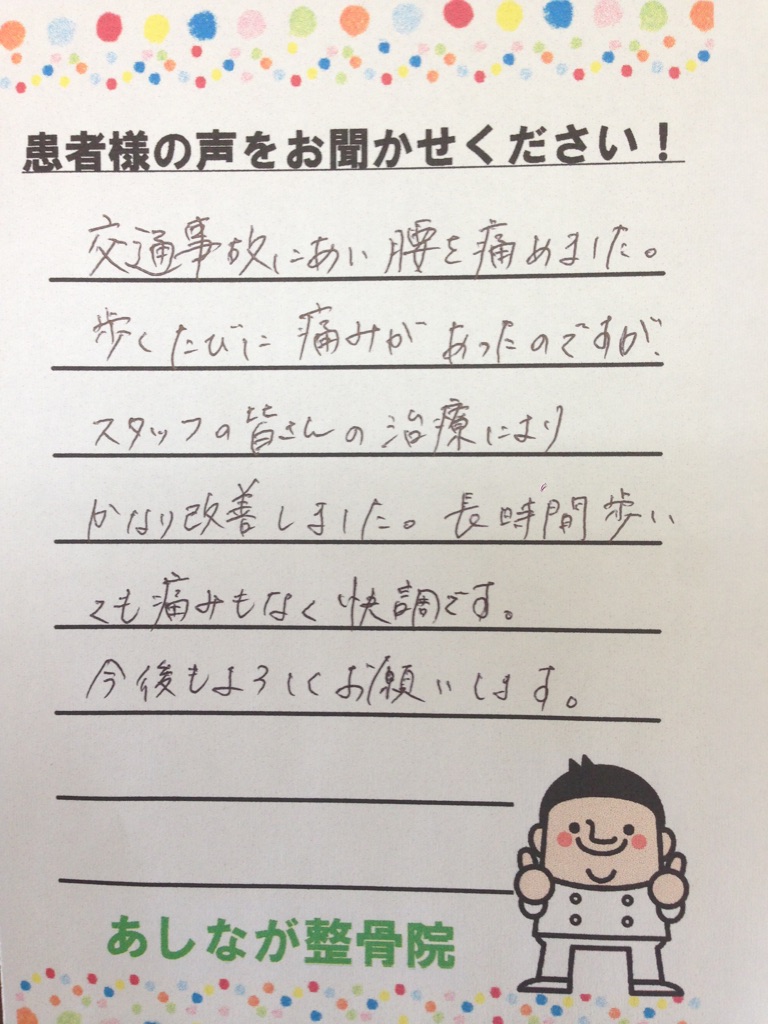 患者様の声をお聞かせください！
交通事故にあい腰を痛めました。
歩くたびに痛みがあったのですが、
スタッフの皆さんの治療により
かなり改善しました。長時間歩い
ても痛みもなく快調です。
今後もよろしくお願いします。
あしなが整骨院